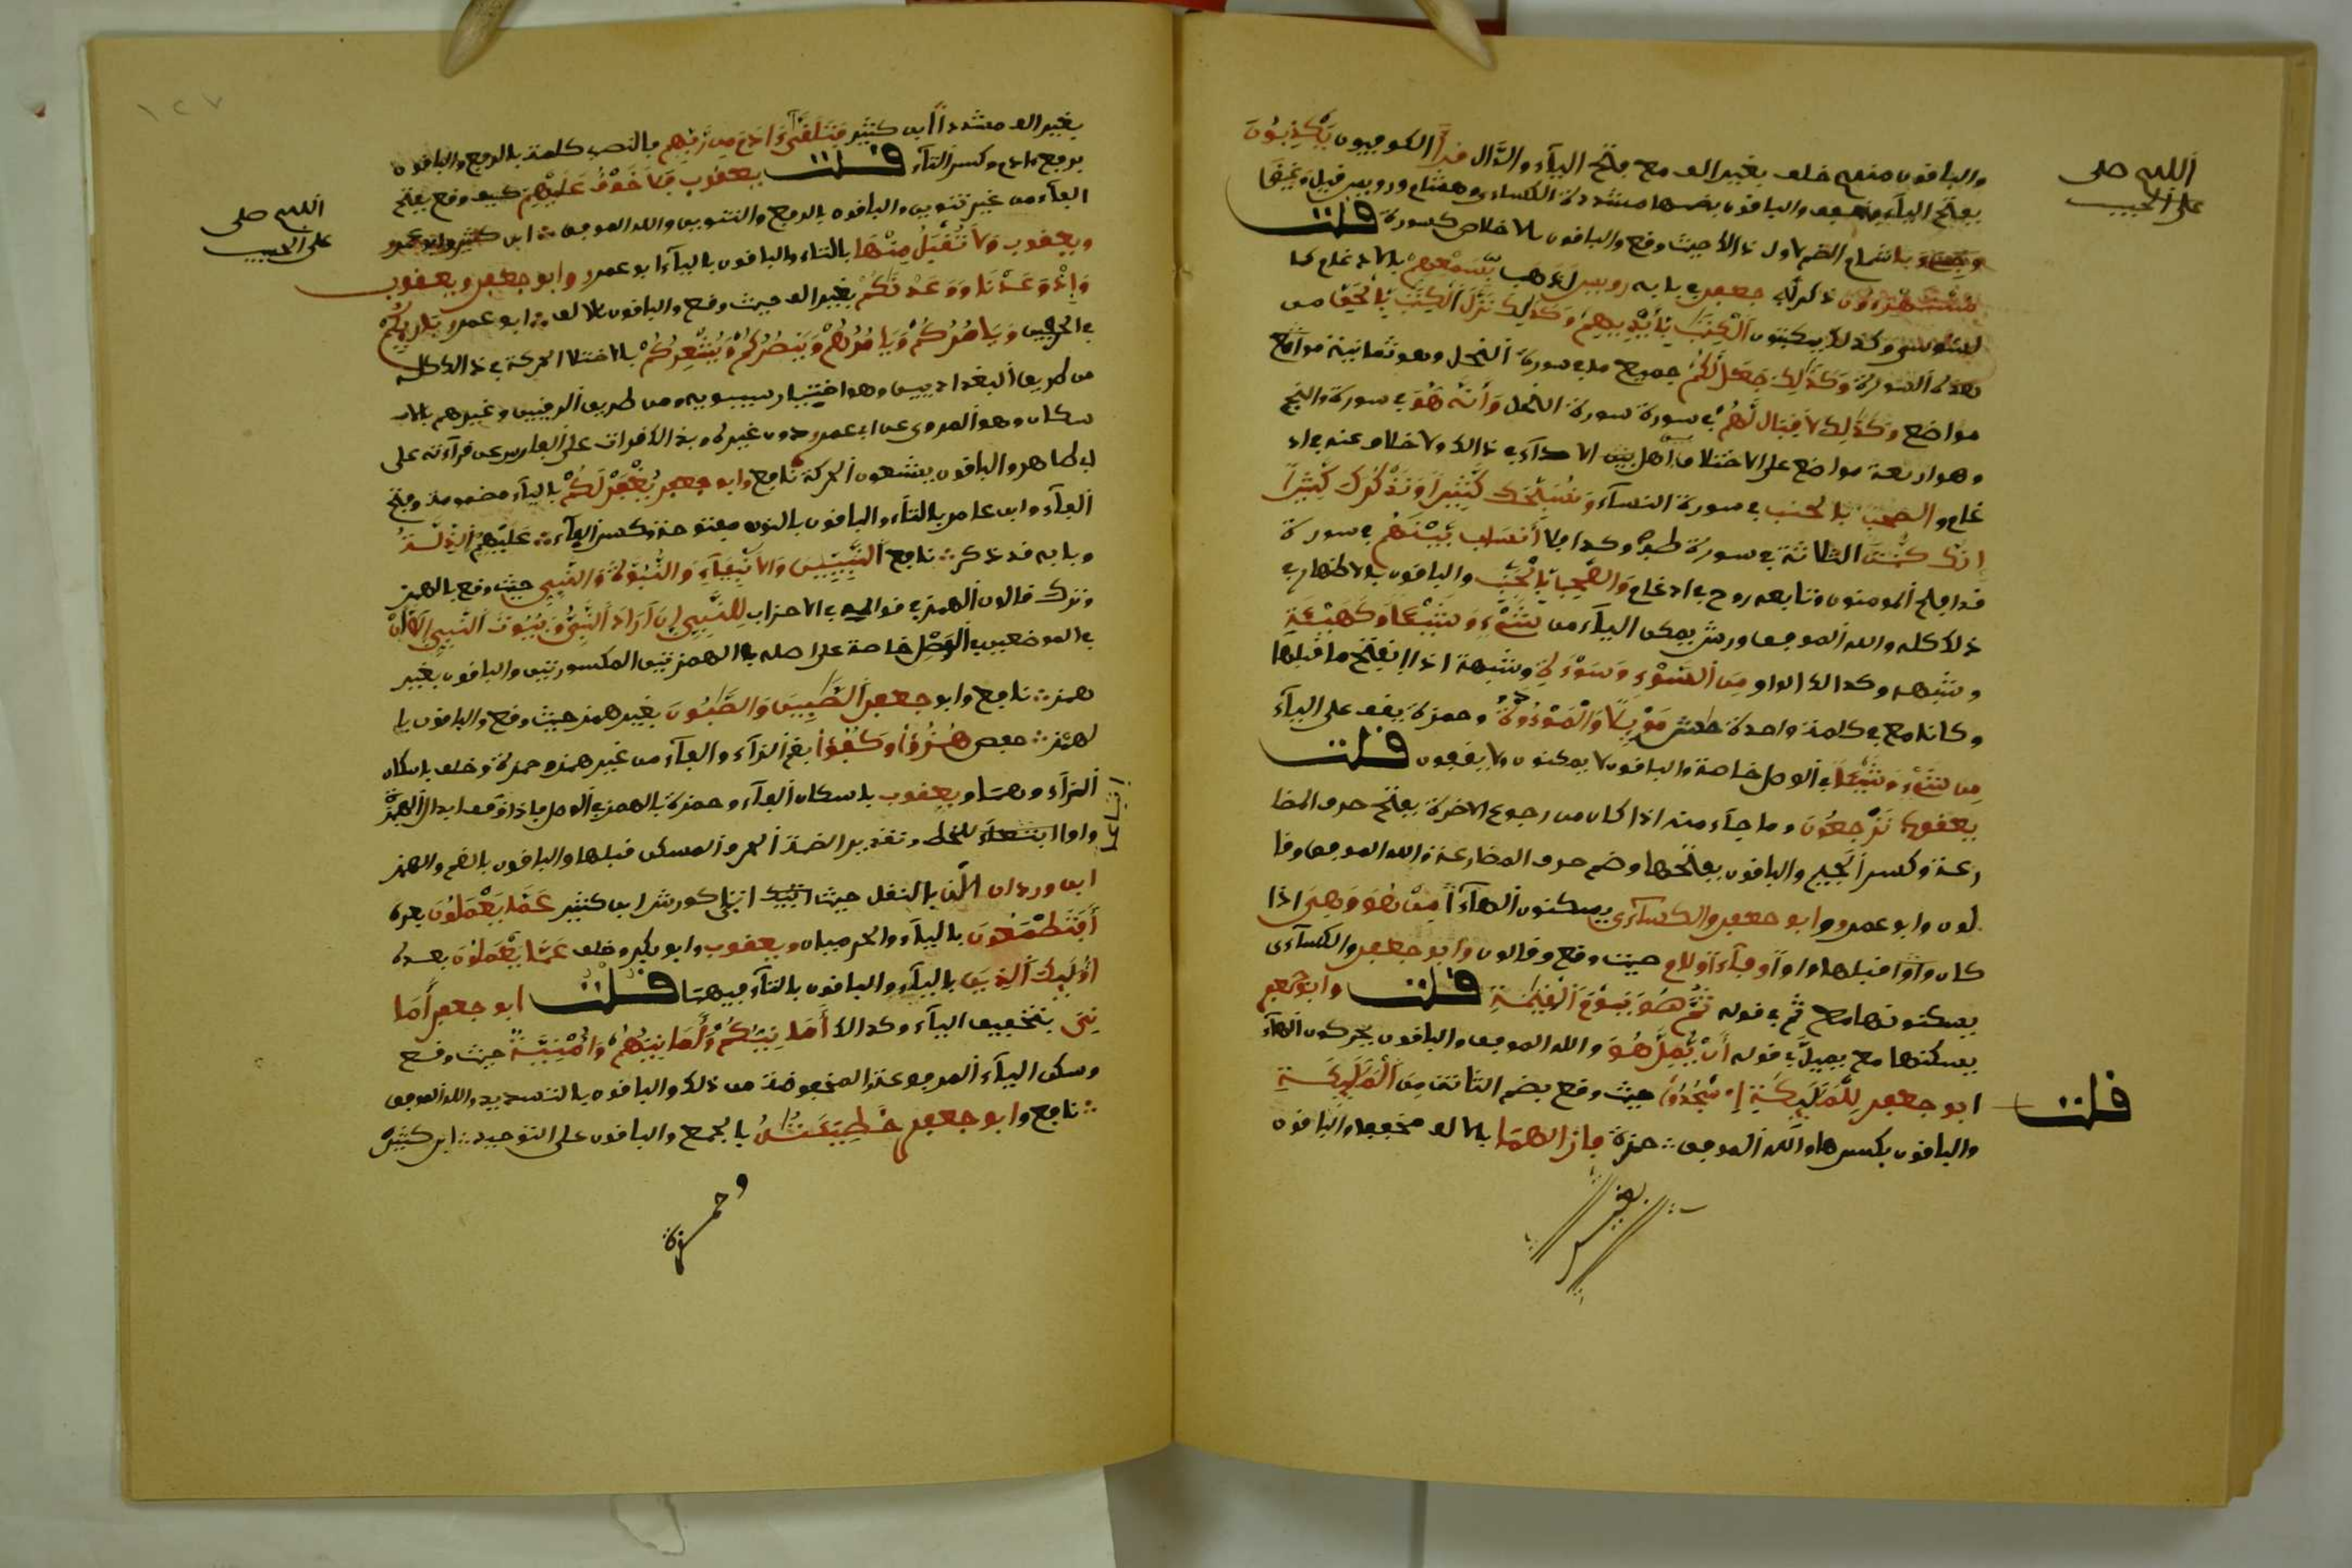 اللهم صل
على الحبيب
والباقون منهم خلف بغير الف مع فتح الياء والدال قرأ الكوفيون يكذبون
بفتح الياء والباقون بضمها مشددة الكساءي وهشام ورويس قيل وغيض
باشمام الضم الاول ذالك حيث وقع والباقون بالاخلاص كسورة قلت
مستهزءون ذكر لأبي جعفر في بابه رويس لذهب بسمعهم بالادغام كما
للسوسي وكذلك يكتبون الكتب بأيديهم وكذلك نزل الكتب بالحق من
هذه السورة وكذلك جعل لكم جميع ما في سورة النحل وهو ثمانية مواضع
مواضع وكذلك لا قبل لهم في سورة النمل وأنه هو في سورة والنجم
وهو اربعة مواضع على الاختلاف اهل الاداء في ذالك ولا خلاف عنه في اد
غام والصحب بالجنب في سورة النساء ونسبحك كثيرا ونذكرك كثيرا
انك كنت الثلاثة في سورة طه وكذا فلا أنساب بينهم في سورة
قد افلح المومنون وتابعه روح في ادغام والصحب بالجنب والباقون بالاظهار في
ذلك كله والله الموفق ورش يمكن الياء من شيء وشيئا وكهيئة
وشبهه وكذالك الواو من السوء وسوءة وشبهه اذا انفتح ما قبلها
وكانا مع في كلمة واحدة موئلا والموءودة وحمزة يقف على الياء
من شيء وشيئا في الوصل خاصة والباقون لا يمكنون ولا يقفون قلت
يعقوب ترجعون وما جاء منه اذا كان من رجوع الاخرة بفتح حرف المضا
رعة وكسر الجيم والباقون بفتحها وضم حرف المضارعة والله الموفق وقا
لون وابو عمرو وابو جعفر والكساءي يسكنون الهاء من هو وهي اذا
كان واوا قبلها واوا او فاء او لام حيث وقع وقالون وابو جعفر والكساءى
يسكنونها مع ثم في قوله ثم هو يوم القيمة قلت وابو جعفر
يسكنها مع يمل في قوله أن يمل هو والله الموفق والباقون يحركون الهاء
قلت
ابو جعفر للملئكة اسجدوا حيث وقع بضم التاء من الملئكة
والباقون بكسرها والله الموفق حمزة فازالهما بالالف مخففا والباقون
بغير
١٢٧
اللهم صل
على الحبيب
بغير الف مشددا ابن كثير فتلقى ءادم من ربه بالنصب كلمت بالرفع والباقون
برفع ءادم وكسر التاء قلت يعقوب فلا خوف عليهم كيف وقع بفتح
الفاء من غير تنوين والباقون بالرفع والتنوين والله الموفق ابن كثير وابو عمرو
ويعقوب ولا تقبل منها بالتاء والباقون بالياء ابو عمرو وابو جعفر ويعقوب
وإذ وعدنا ووعدنكم بغير الف حيث وقع والباقون بالالف ابو عمرو بارئكم
في الحرفين ويامركم ويامرهم وينصركم ويشعركم بالاختلاس الحركة في ذالك كله
من طريق البغداديين وهو اختيار سيبويه ومن طريق الرقيين وغيرهم بالا
سكان وهو المروي عن ابي عمرو دون غيره وبذالك قرات على الفارسي عن قرآءته على
ابي طاهر والباقون يشبعون الحركة نافع وابو جعفر يغفر لكم بالياء مضمومة وفتح
الفاء وابن عامر بالتاء والباقون بالنون مفتوحة وكسر الفاء عليهم الذلة
وبابه قد ذكر نافع النبيئين والانبئاء والنبوءة والنبيء حيث وقع بالهمز
وترك قالون الهمز في قوله في الاحزاب للنبي إن أراد النبي وبيوت النبي الا أن
في الموضعين في الوصل خاصة على اصله في الهمزتين المكسورتين والباقون بغير
همز نافع وابو جعفر الصبين والصبون بغير همز حيث وقع والباقون با
لهمز حفص هزوا وكفوا بضم الزاء والفاء من غير همز وحمزة وخلف باسكان
الزاء وهما ويعقوب باسكان الفاء وحمزة بالهمز في الوصل فاذا وقف ابدل الهمزة
واوا اتباعا للخط وتقدير الضمة الحرف المسكن قبلها والباقون بالضم والهمز
اتباعا
ابن وردان الن بالنقل حيث كورش ابن كثير عما يعملون بعده
أفتطمعون بالياء والحرميان ويعقوب وابو بكر وخلف عما يعملون بعده
اولئك الذين بالياء والباقون بالتاء فيهما قلت ابو جعفر أما
ني بتخفيف الياء وكذالك أمانيكم وأمانيهم وأمنيته حيث وقع
وسكن الياء المرفوعة والمخفوضة من ذلك والباقون بالتشديد والله الموفق
نافع وابو جعفر خطيئته بالجمع والباقون على التوحيد ابن كثير
وحمزة